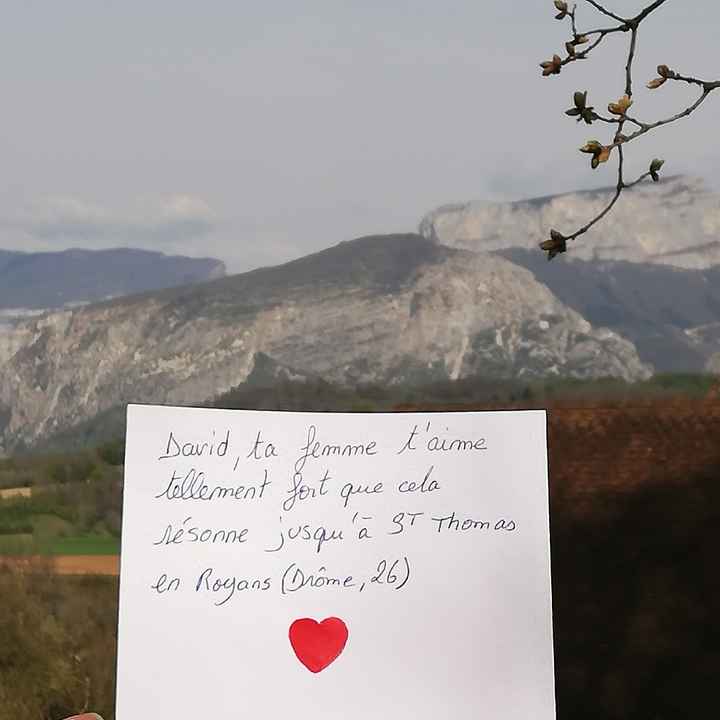 David, ta femme t'aime
tellement fort que cela
résonne jusqu'à ST Thomas
en Royans (Drôme, 26)